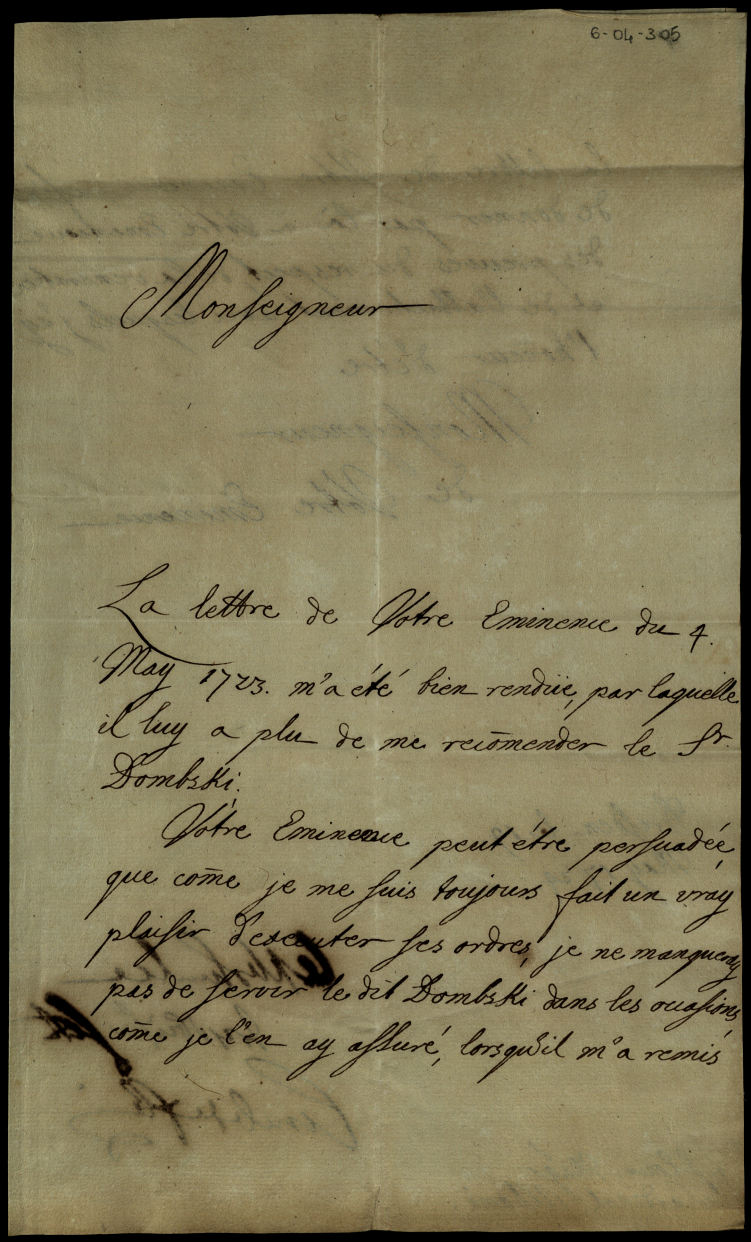 6-04-305
Monseigneur
La lettre de Votre Eminence du 4.
May 1723. m'a été bien rendüe, par laquelle
il luy a plu de me recom̄ender le Sr.
Dombski.
Vôtre Eminence peut être persuadée,
que com̄e je me suis toujours fait un vray
plaisir d'executer ses ordres, je ne manqueray
pas de servir le dit Dombski dans les occasions,
com̄e je l'en ay assuré, lorsqu'il m'a remis